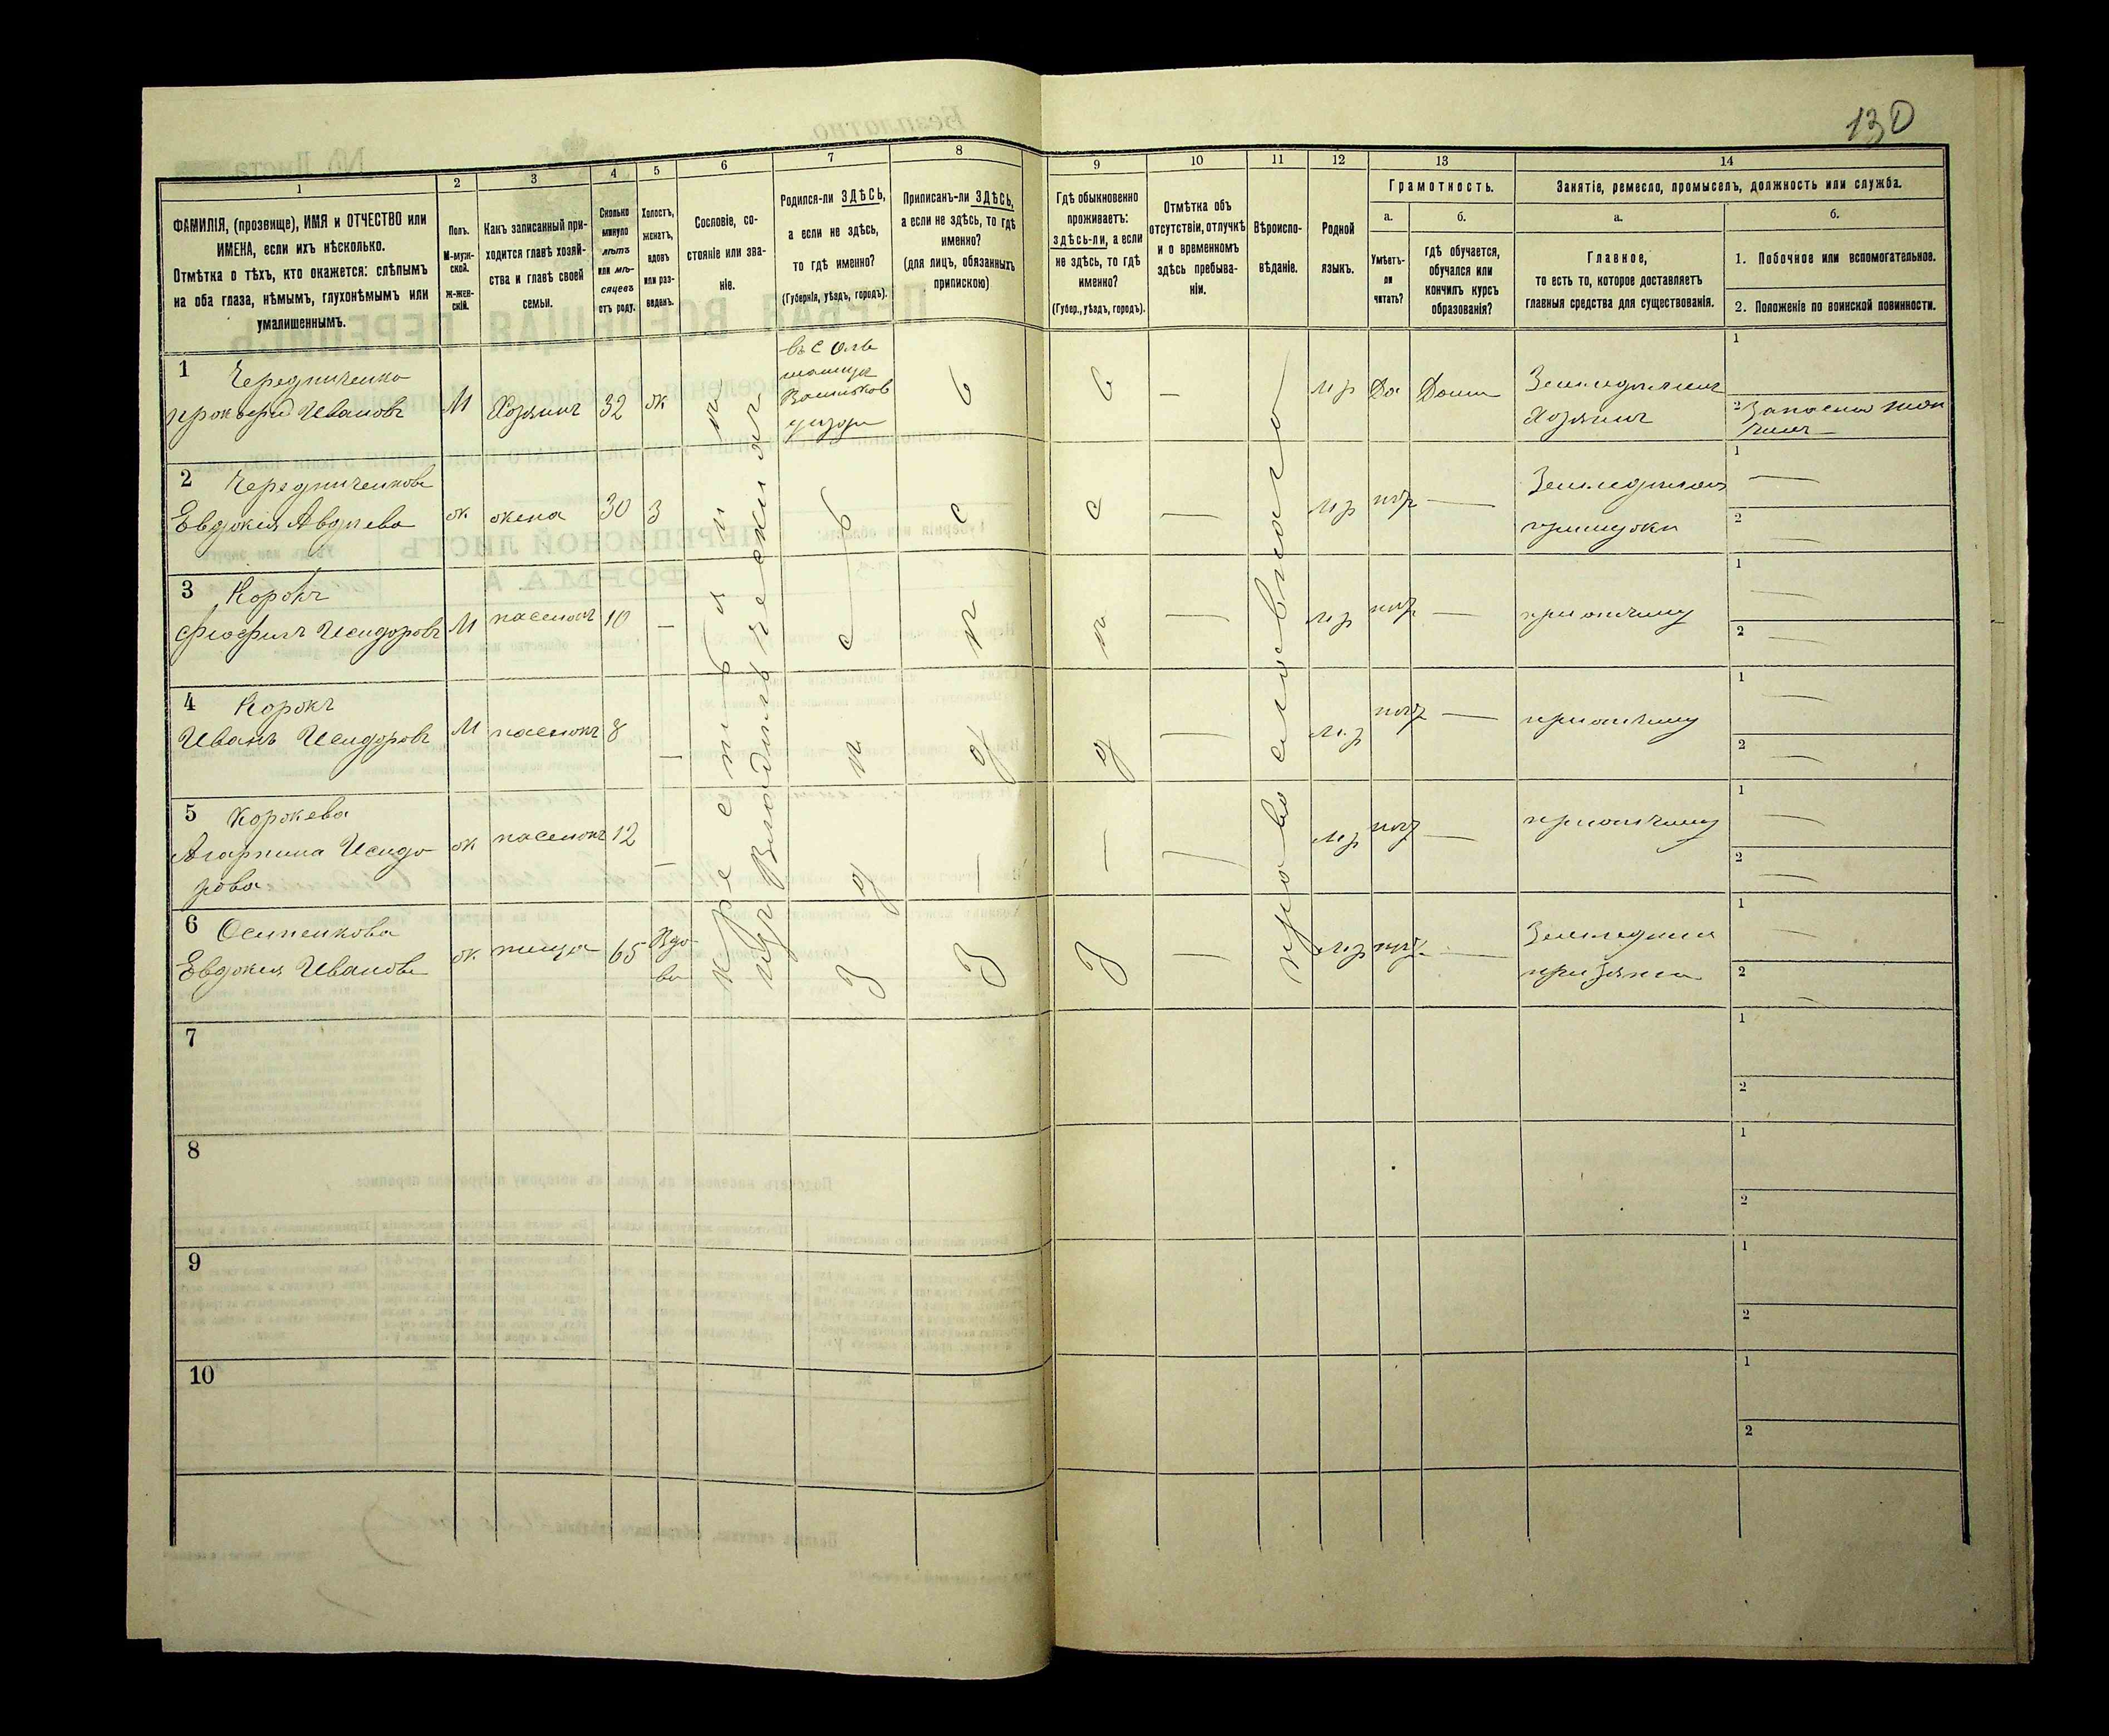 130
1
2
3
4
5
6
7
8
9
10
11
12
13
14
ФАМИЛІЯ, (прозвище), ИМЯ и ОТЧЕСТВО или
ИМЕНА, если ихъ нѣсколько.
Отмѣтка о тѣхъ, кто окажется: слѣпымъ
на оба глаза, нѣмымъ, глухонѣмымъ или
умалишеннымъ.
Полъ.
М-муж-
ской.
Ж-жен-
скій.
Какъ записанный при-
ходится главѣ хозяй-
ства и главѣ своей
семьи.
Сколько
минуло
лѣтъ
или мѣ-
сяцевъ
отъ роду.
Холостъ,
женатъ,
вдовъ
или раз-
веденъ.
Сословіе, со-
стояніе или зва-
ніе.
Родился-ли ЗДѢСЬ,
а если не здѣсь,
то гдѣ именно?
(Губернія, уѣздъ, городъ).
Приписанъ-ли ЗДѢСЬ,
а если не здѣсь, то гдѣ
именно?
(для лицъ, обязанныхъ
припискою)
Гдѣ обыкновенно
проживаетъ:
здѣсь-ли, а если
не здѣсь, то гдѣ
именно?
(Губер., уѣздъ, городъ).
Отмѣтка объ
отсутствіи, отлучкѣ
и о временномъ
здѣсь пребыва-
ніи.
Вѣроиспо-
вѣданіе.
Родной
языкъ.
Грамотность.
а.
Умѣетъ-
ли
читать?
б.
Гдѣ обучается,
обучался или
кончилъ курсъ
образованія?
Занятіе, ремесло, промыселъ, должность или служба.
а.
Главное,
то есть то, которое доставляетъ
главныя средства для существованія.
б.
1. Побочное или вспомогательное.
2. Положеніе по воинской повинности.
1 Чередниченко
Прокофій Ивановъ М Хозяинъ 32 ж
въ с Оль
шаница
Васильков
уѣзда
М р Да Дома Земледѣлецъ
Хозяинъ
1
2
2 Чередниченкова
Евдокія Авдѣева ж жена 30 З
М р Земледѣліе
при мужи
1
2
3 Корокъ
Феофилъ Исидоровъ М пасынокъ 10 —
М р — при отчиму
1
2
4 Корокъ
Иванъ Исидоровъ М пасынокъ 8 —
М р — при отчиму
1
2
5 Корокева
Агарпина Исидо
рова ж пасынокъ 12 —
М р — при отчиму
1
2
6 Осипенкова
Евдокия Иванова ж теща 65 Вдо
ва
М р — Земледѣліе
при зятѣ
1
2
крестьянинъ
изъ Владѣльческихъ
здѣсь
здѣсь
здѣсь
православнаго
7
1
2
8
1
2
9
1
2
10
1
2